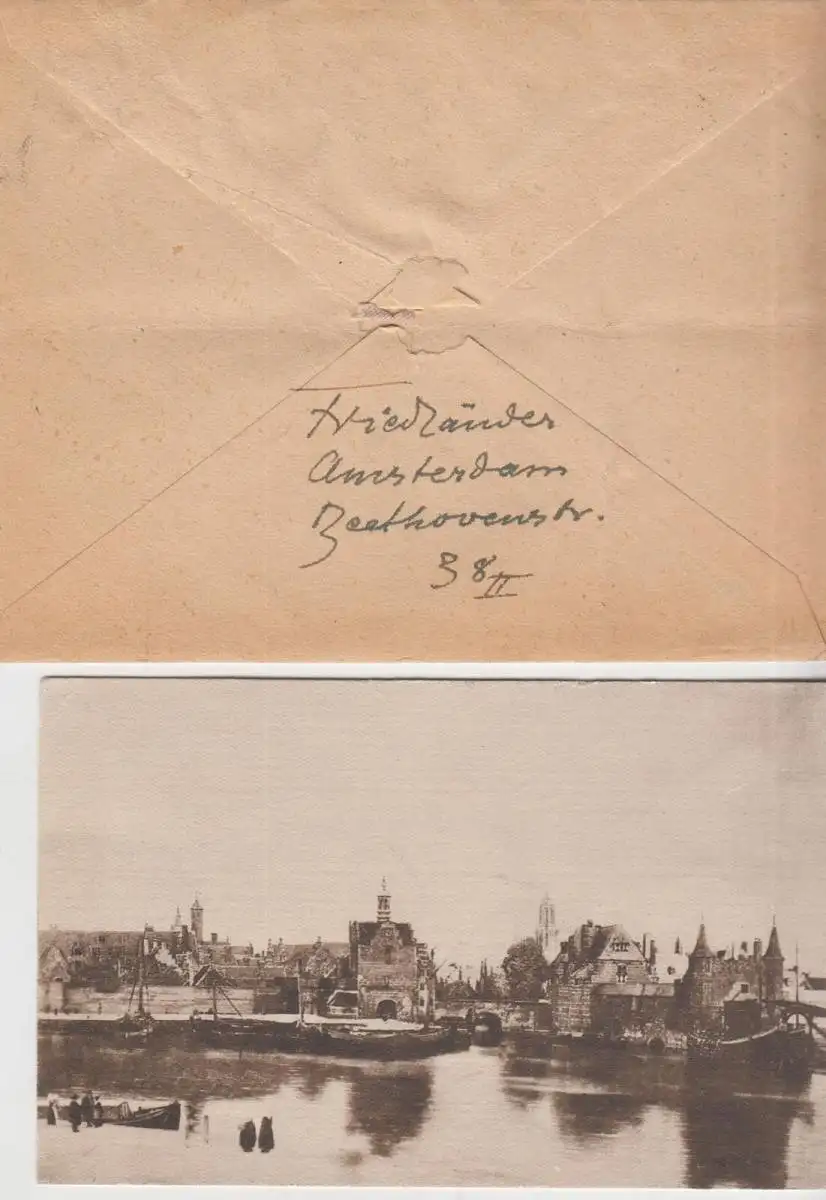 Friedländer
Amsterdam
Beethovenstr.
38 II